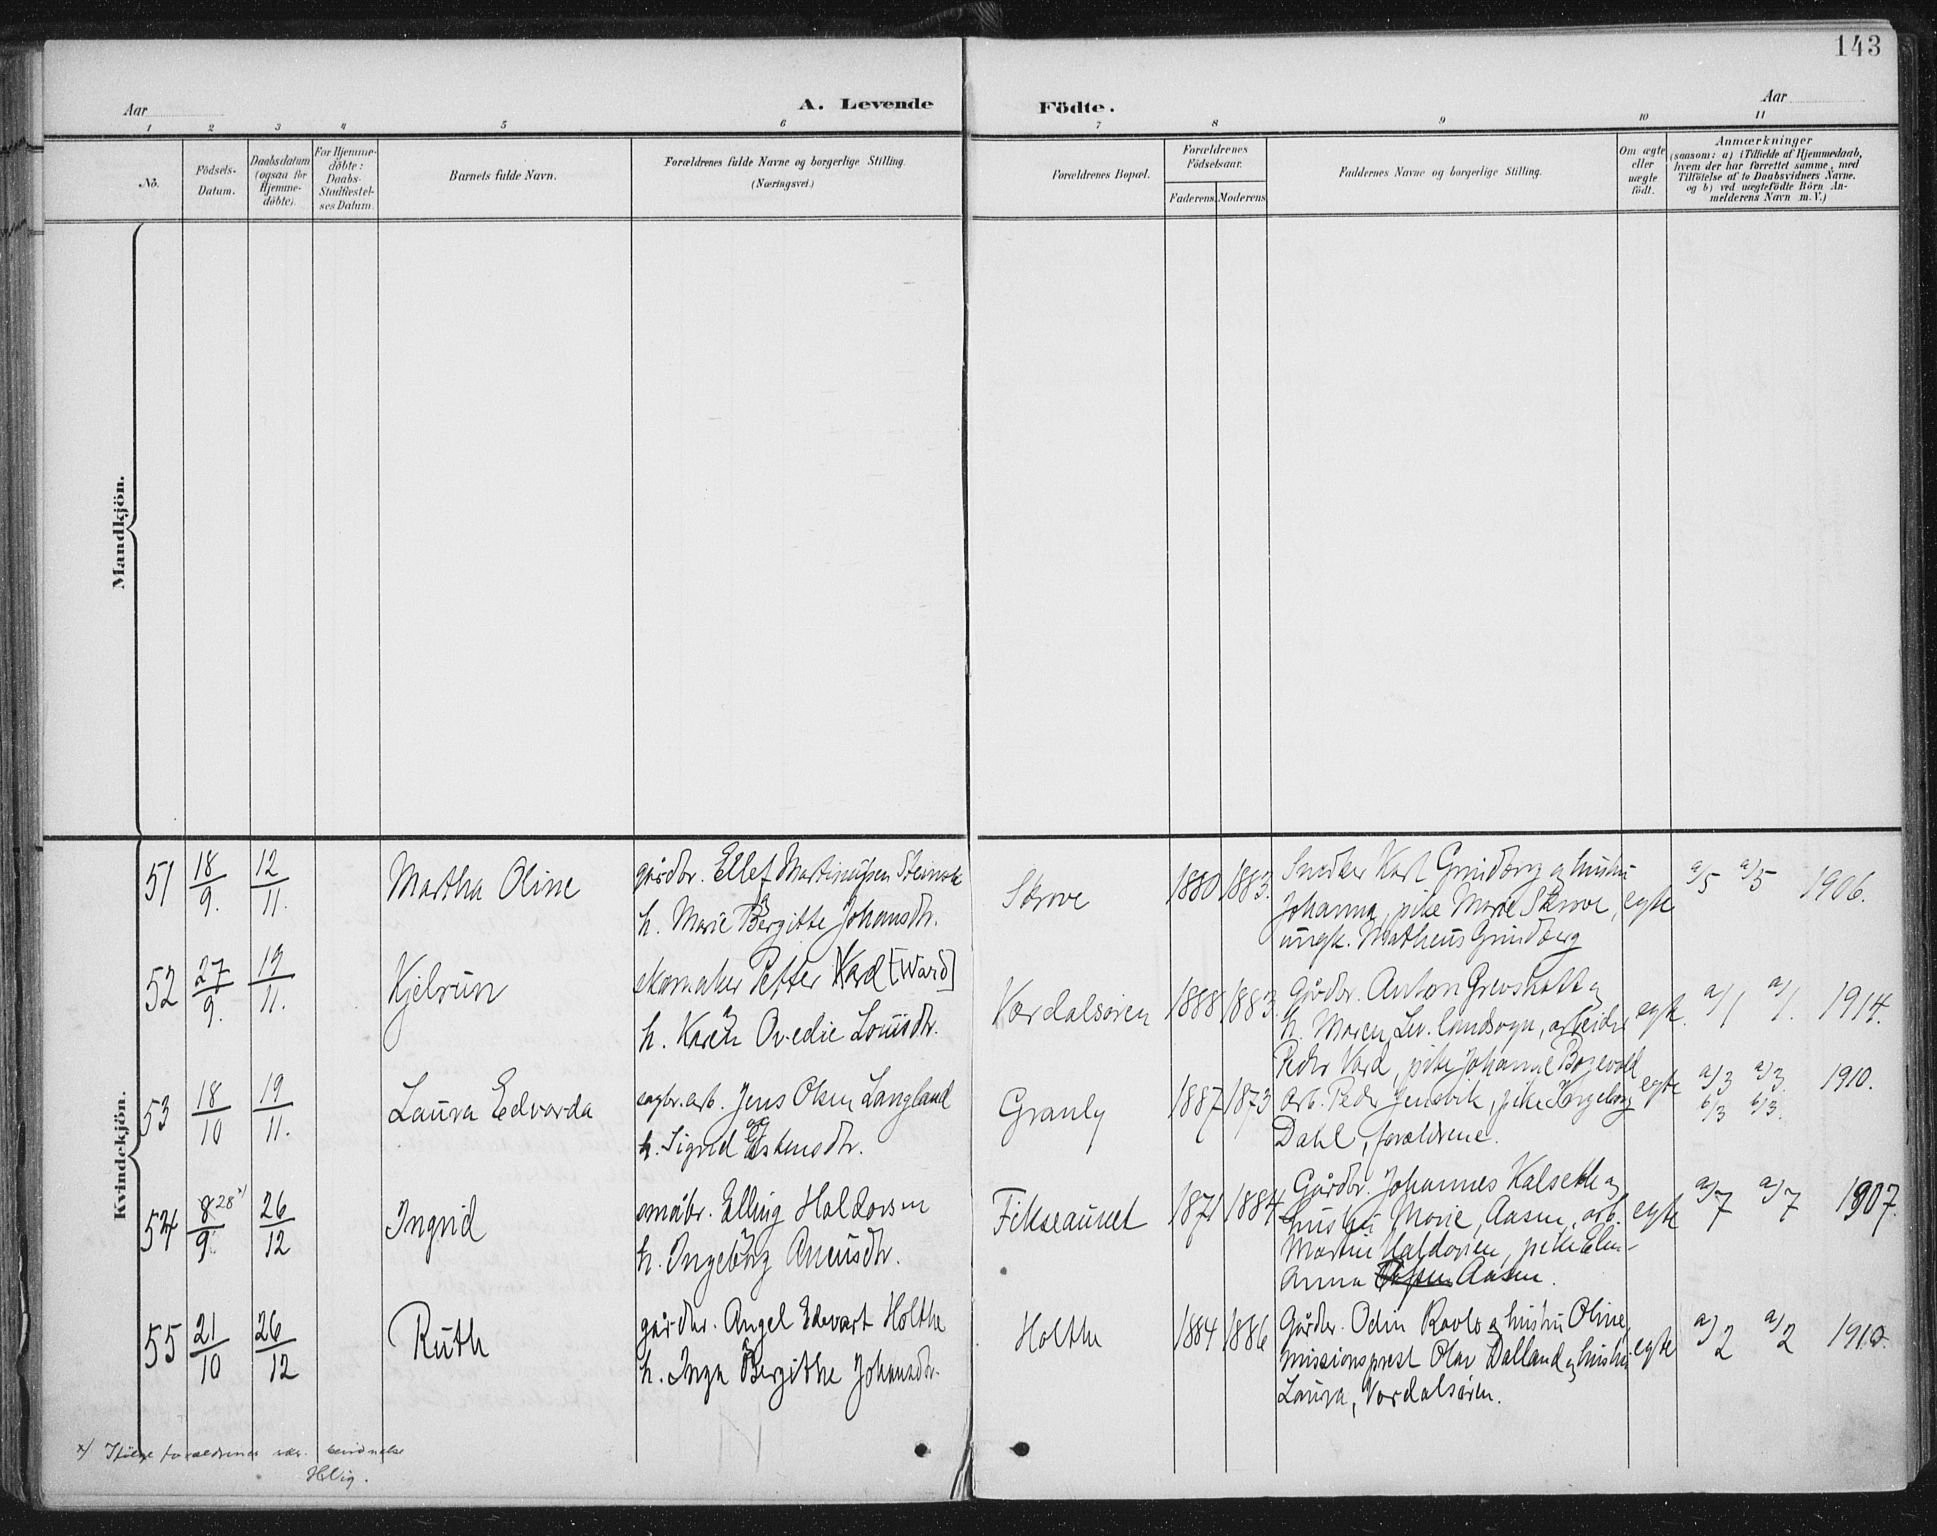 143
Aar
A. Levende
Födte.
Aar
1 2 3 4 5 6 7 8 9 10 11
No.
Födsels-
Datum.
Daabsdatum
(ogsaa for
Hjemme-
döbte).
For Hjemme-
döbte:
Daabs-
Stadfæstel-
ses Datum.
Barnets fulde Navn.
Forældrenes fulde Navne og borgerlige Stilling.
(Næringsvei.)
Forældrenes Bopæl.
Forældrenes
Födselsaar.
Faderens.
Moderens.
Faddernes Navne og borgerlige Stilling.
Om ægte
eller
uægte
født.
Anmærkninger
(saasom: a) i Tilfælde af Hjemmedaab,
hvem der har forrettet samme, med
Tilföielse af to Daabsvidners Navne.
og b) ved uægtefödte Börn An-
melderens Navn m. V.)
Mandkjön.
Kvindekjön.
51 18/9. 12/11. Martha Oline
gårdbr. Ellef Martinusen
h. Marie Bergitte Johansdr.
Skrove 1880 1883.
Snedker Karl Grundberg og hustru
Johanna, pike Marie Skrove,
ungk. Matheus Grundberg
egte a/5 a/5 1906.
52 27/9. 19/11. Kjelrun
skomaker Petter Vard [Ward]
h. Karen Ovedie Louisdr.
Værdalsøren 1888 1883.
Gårdbr. Anton Grevskott og
h. Maren, Lev. landsogn, arbeider
Peder Vard, pike Johanne
egte. a/1 a/1. 1914.
53 18/10 19/11. Laura Edvarda
sagbr. arb. Jens Olsen Langland
h. Sigrid Eskensdtr.
Granly 1887 1873
arb. Peder Jensvik, pike
Dahl, forældrene.
egte a/3 a/3. 1910.
b/3 b/3.
54 8 28 x)/9. 26/12 Ingrid
småbr. Elling Haldorsen
h. Ingeborg
Fikseaunet 1871 1884
Gårdbr. Johannes Kalseth og
hustru Marie, Aasen, arb.
Martin Haldorsen, pike Elen
Anna Aasen.
egte a/7 a/7 1907.
55 21/10 26/12 Ruth
gårdbr. Angel Edvart Holthe
h. Inga Bergithe Johansdr.
Holthe 1884 1886
Gårdbr. Odin Ravlo og hustru Oline,
missionsprest Olav Dalland og hustru
Laura, Værdalsøren.
egte a/2 a/2 1910.
x) Ifølge forældrenes